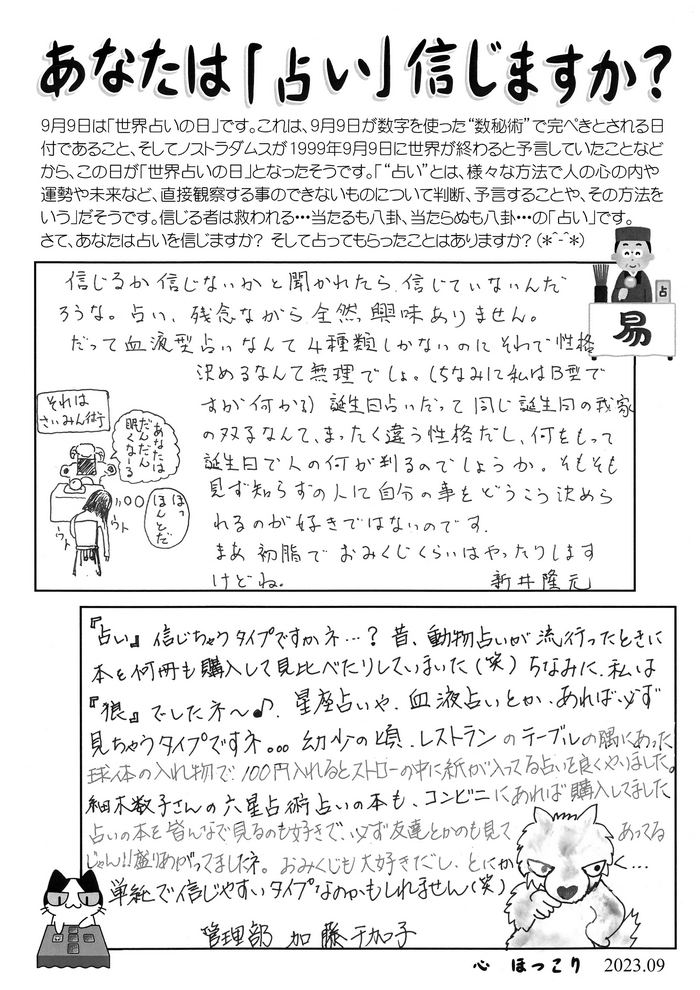 あなたは「占い」信じますか？
9月9日は「世界占いの日」です。これは、9月9日が数字を使った“数秘術”で完ぺきとされる日
付であること、そしてノストラダムスが1999年9月9日に世界が終わると予言していたことなど
から、この日が「世界占いの日」となったそうです。「“占い”とは、様々な方法で人の心の内や
運勢や未来など、直接観察する事のできないものについて判断、予言することや、その方法を
いう」だそうです。信じる者は救われる…当たるも八卦、当たらぬも八卦…の「占い」です。
さて、あなたは占いを信じますか？ そして占ってもらったことはありますか？（*^-^*）
占
易
信じるか信じないかと聞かれたら、信じていないんだ
ろうな。占い、残念ながら全然興味ありません。
だって血液型占いなんて4種類しかないのにそれで性格
決めるなんて無理でしょ。（ちなみに私はB型で
すが何か？）誕生日占いだって同じ誕生日の我家
の双子なんて、まったく違う性格だし、何をもって
誕生日で人の何が判るのでしょうか。そもそも
見ず知らずの人に自分の事をどうこう決めら
れるのが好きではないのです。
まあ初詣でおみくじくらいはやったりします
けどね。 新井隆元
それは
さいみん術
あなたは
だんだん
眠くなーる
ほっ
ほんとだ
ウト
ウト
『占い』信じちゃうタイプですかネ…？昔、動物占いが流行ったときに
本を何冊も購入して見比べたりしていました（笑）ちなみに、私は
『狼』でしたネ～♪。星座占いや、血液占いとか、あれば必ず
見ちゃうタイプですネ。。。幼少の頃、レストランのテーブルの隅にあった
球体の入れ物で、100円入れるとストローの中に紙が入ってる占いを良くやりました。
細木数子さんの六星占術占いの本も、コンビニにあれば購入してました
占いの本を皆んなで見るのも好きで、必ず友達とかのも見て あってる
じゃん!!盛りあがってましたネ。おみくじも大好きだし、とにかく…
単純で信じやすいタイプなのかもしれません（笑）
管理部 加藤千加子
心 ほっこり 2023.09